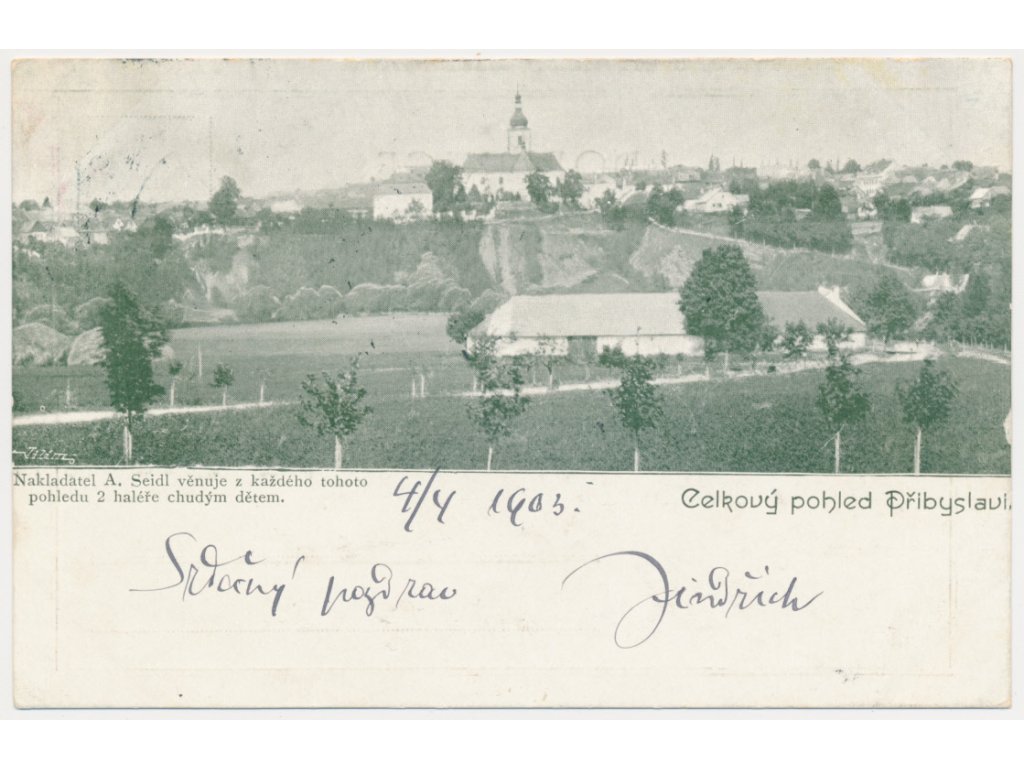 Nakladatel A. Seidl věnuje z každého tohoto
pohledu 2 haléře chudým dětem.
Celkový pohled Přibyslavi.
4/4 1903.
Srdečný pozdrav Jindřich